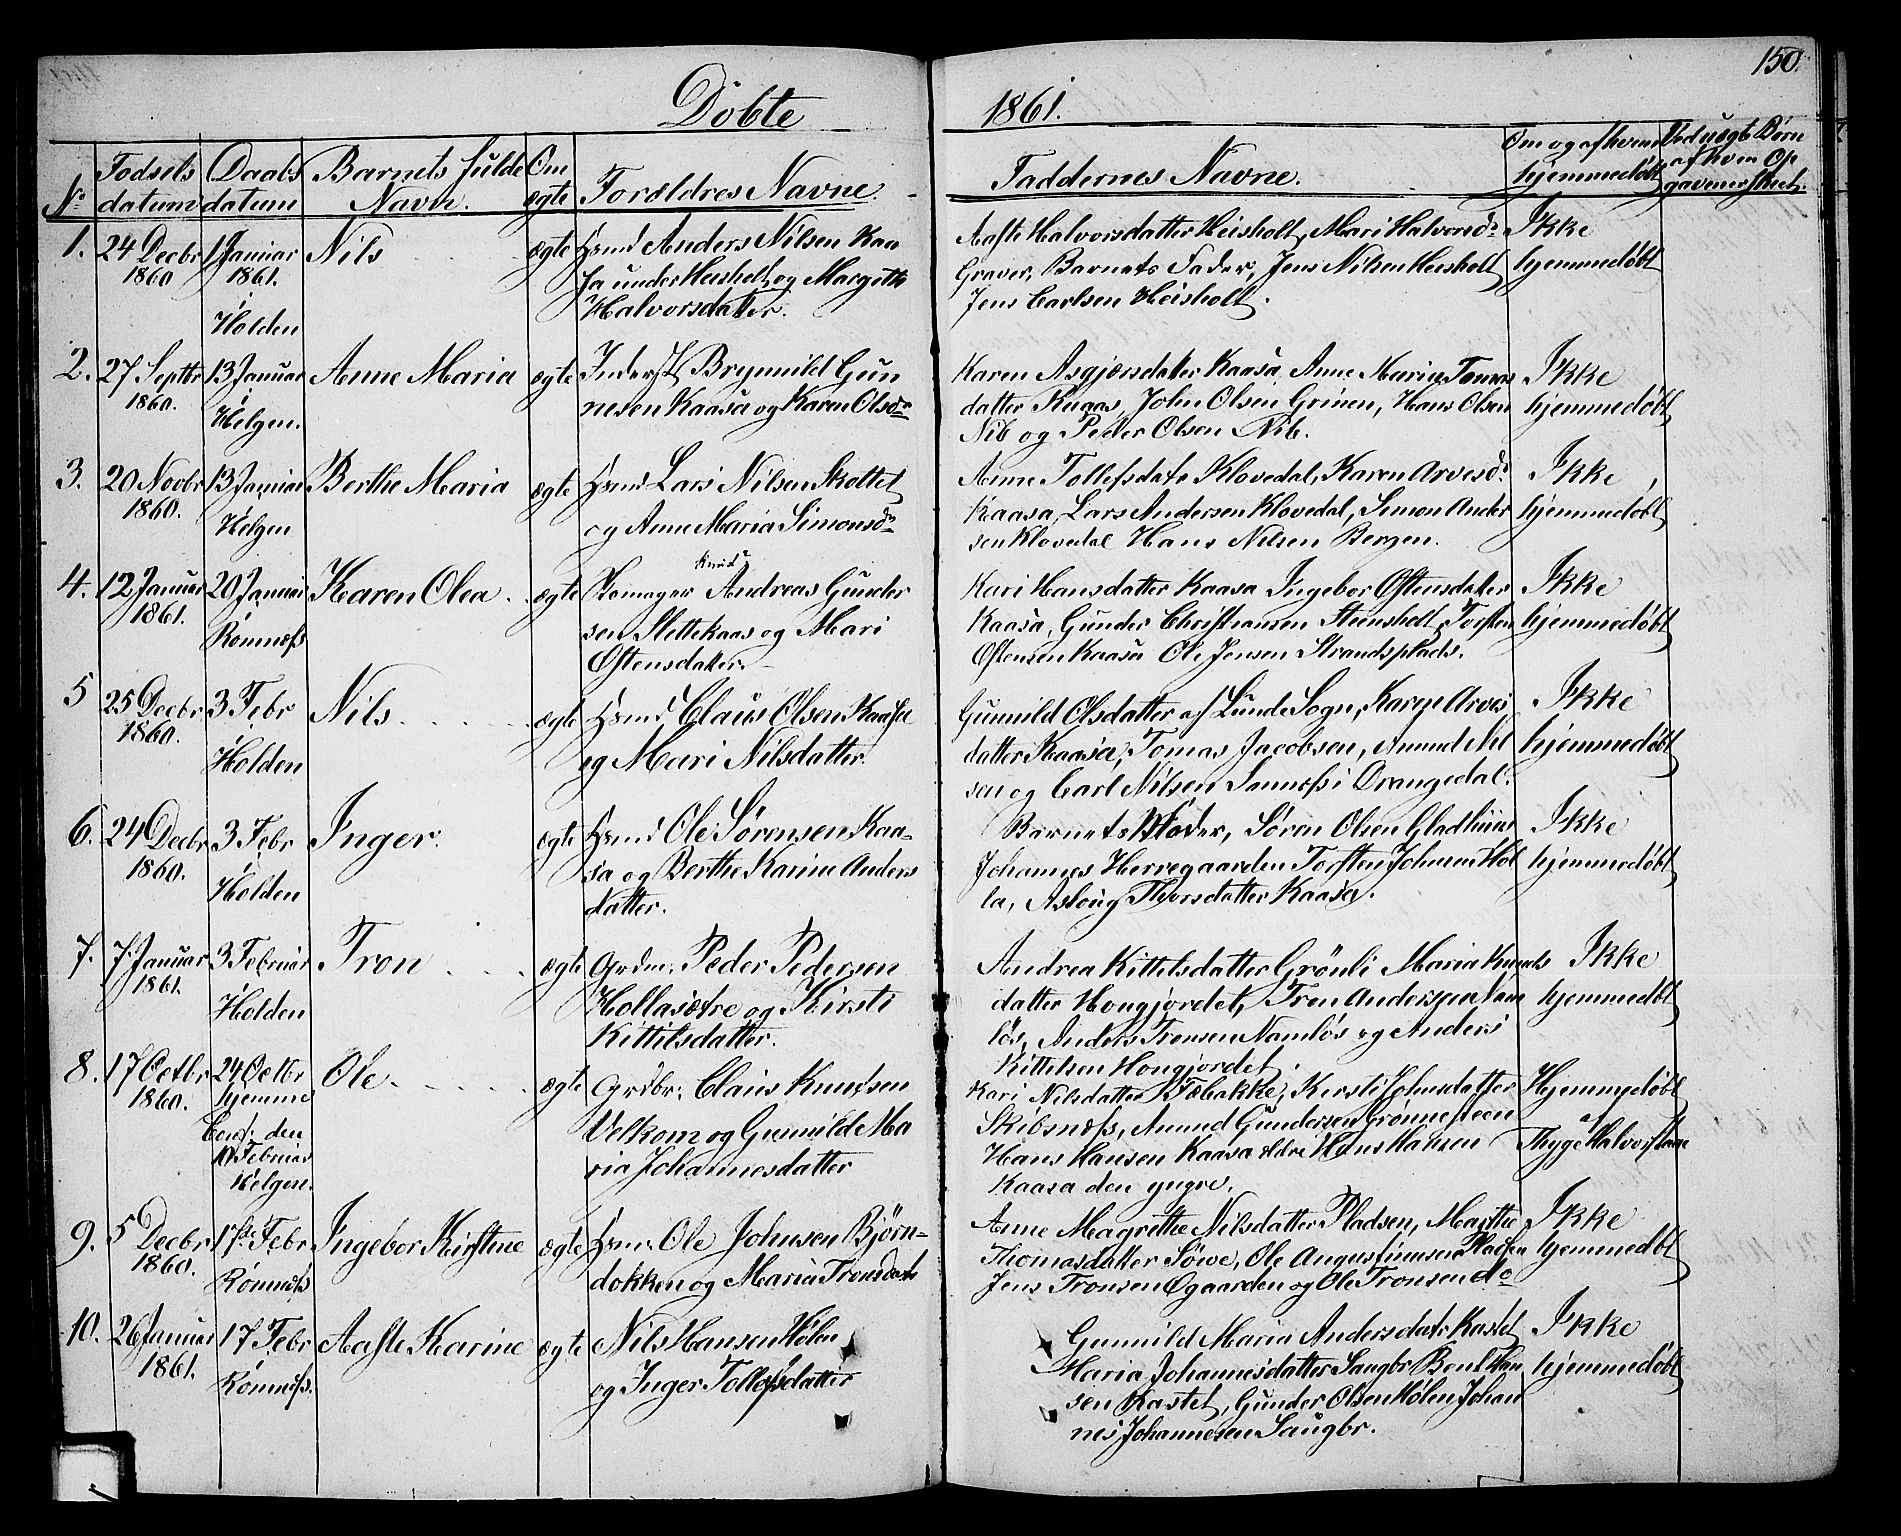 150.
Döbte
1861.
No
Fodsels datum
Daabs datum
Barnets fulde Navn.
Om ægte
Forældres Navne.
Faddernes Navne.
Om og af hvem hjemmedöbt
Ved uægte Börn af hvem Opgaven er skeet.
1. 24 Decbr 1860
1 Januar 1861. Holden
Nils
ægte
Hsmd Anders Nilsen Kaa
sa under Heisholt og Margethe
Halvorsdatter.
Aaste Halvorsdatter Heisholt, Mari Halvorsdr
Graver, Barnets Fader, Jens Nilsen Heisholt
Jens Carlsen Heisholt.
Ikke
hjemmedöbt
2. 27 Septbr 1860.
13 Januar Helgen.
Anne Maria
ægte
Inderst Brynnild Gun
nesen Kaasa og Karen Olsdr
Karen Asgjærsdatter Kaasa, Anne Maria Tomas
datter Knaas, John Olsen Grinen, Hans Olsen
Nib og Peder Olsen Nib.
Ikke
hjemmedöbt
3. 20 Novbr 1860.
13 Januar Helgen
Berthe Maria
ægte
Hsmd Lars Nilsen Skottet
og Anne Maria Simonsdr
Anne Tollefsdatr Klovedal, Karen Arvesdr
Kaasa, Lars Andersen Klovedal, Simon Ander
sen Klovedal Hans Nilsen Bergen.
Ikke
hjemmedöbt
4. 12 Januar 1861.
20 Januar Romnæss
Karen Olea
ægte
Knud
Skomager Andreas Gunder
sen Slettekaas og Mari
Østensdatter
Kari Hansdatter Kaasa Ingebor Østensdatter
Kaasa, Gunder Christiansen Steensholt, Torsten
Østensen Kaasa Ole Jensen Strandsplads.
Ikke
hjemmedöbt
5 25 Decbr 1860.
3 Febr Holden
Nils
ægte
Hsmd Claus Olsen Kaasa
og Mari Nilsdatter
Gunnild Olsdatter af Lunde Sogn, Karen Arves
datter Kaasa, Tomas Jacobsen, Amund Nil
sen og Carl Nilsen Sannæss i Drangedal.
Ikke
hjemmedöbt
6. 24 Decbr 1860.
3 Febr Holden
Inger
ægte
Hsmd Ole Sörensen Kaa-
sa og Berthe Karine Anders
datter.
Barnets Moder, Sören Olsen Gladhuus
Johannes Herregaarden Torsten Johnsen Hol
la, Asloug Thorsdatter Kaasa.
Ikke
hjemmedöbt
7. 7 Januar 1861.
3 Februar Holden
Tron
ægte
Grdm: Peder Pedersen
Hollasætre og Kirsti
Kittilsdatter.
Andrea Kittilsdatter Grönli Maria Knuds
datter Hongjordet, Tron Andersen Nam
lös, Anders Tronsen Namlös og Anders
Kittilsen Hongjordet.
Ikke
hjemmedöbt
8. 17 Octbr 1860.
24 Octbr hjemme
Conf. den
10 Februar
Helgen.
Ole
ægte
Grdbr: Claus Knudsen
Velkom og Gunnild Ma
ria Johannesdatter
Kari Nilsdatter Fæbakke, Kersti Johnsdatter
Skibsnæss, Amund Gundersen Grönnesteen
Hans Hansen Kaasa ældre Hans Hansen
Kaasa den yngre.
Hjemmedöbt
af
Thyge Halvorstaae
9. 5 Decbr 1860.
17de Febr Romnæss
Ingebor Kirstine
ægte
Hsm: Ole Johnsen Björn-
dokken og Maria Tronsdatr
Anne Magrethe Nilsdatter Pladsen, Marthe
Thomasdatter Söwe, Ole Augustinusen Pladsen
Jens Tronsen Øgaarden og Ole Tronsen do
Ikke
hjemmedöbt
10. 26 Januar 1861.
17 Febr Romnæss.
Aaste Karine
ægte
Nils Hansen Hölen
og Inger Tollefsdatter
Gunnild Maria Andersdatr Kastet
Maria Johannesdatter Saugbr Bent Han
sen Kastet, Gunder Olsen Hölen Johan
nes Johannesen Saugbr.
Ikke
hjemmedöbt